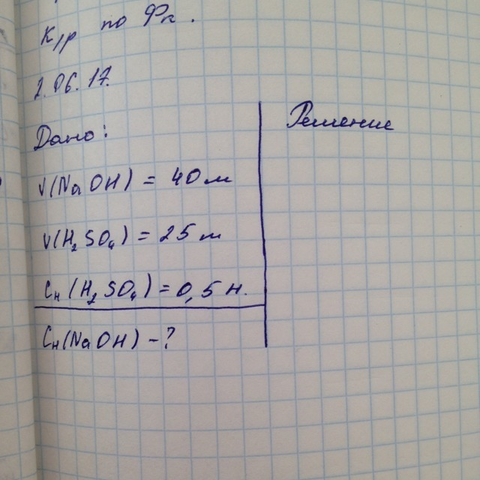 К/р по Фк.
2.06.17.
Дано:
V(NaOH) = 40 м
V(H₂SO₄) = 25 м
Cн(H₂SO₄) = 0,5 н.
Cн(NaOH) - ?
Решение